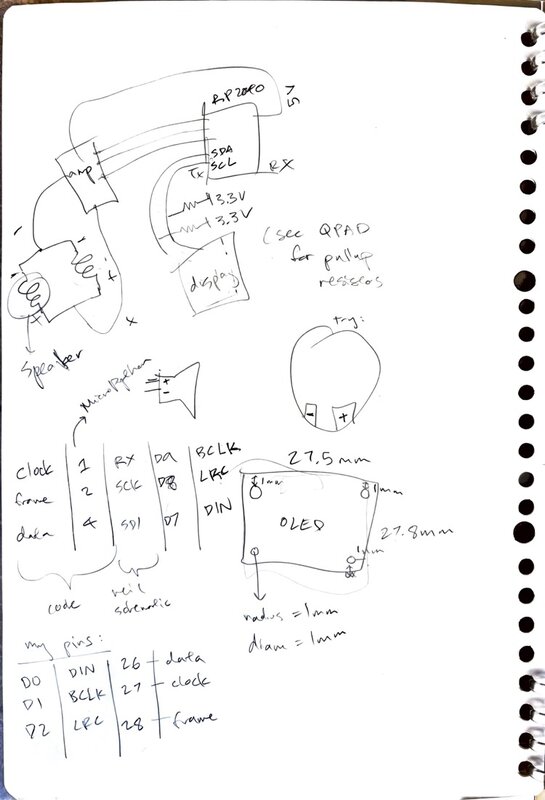 RP2040
5V
amp
SDA
TX SCL
RX
3.3V
3.3V
(see QPAD
for pullup
display
resistos
-
-
+
+
x
speaker
try:
- +
MicroPython
+
-
clock | 1 | RX | D9 | BCLK
frame | 2 | SCK | D8 | LRC
data | 4 | SD1 | D7 | DIN
code
neil
schematic
27.5mm
1mm
1mm
OLED
27.8mm
1mm
radius = 1mm
diam = 1mm
my pins:
D0 | DIN | 26 - data
D1 | BCLK | 27 - clock
D2 | LRC | 28 - frame